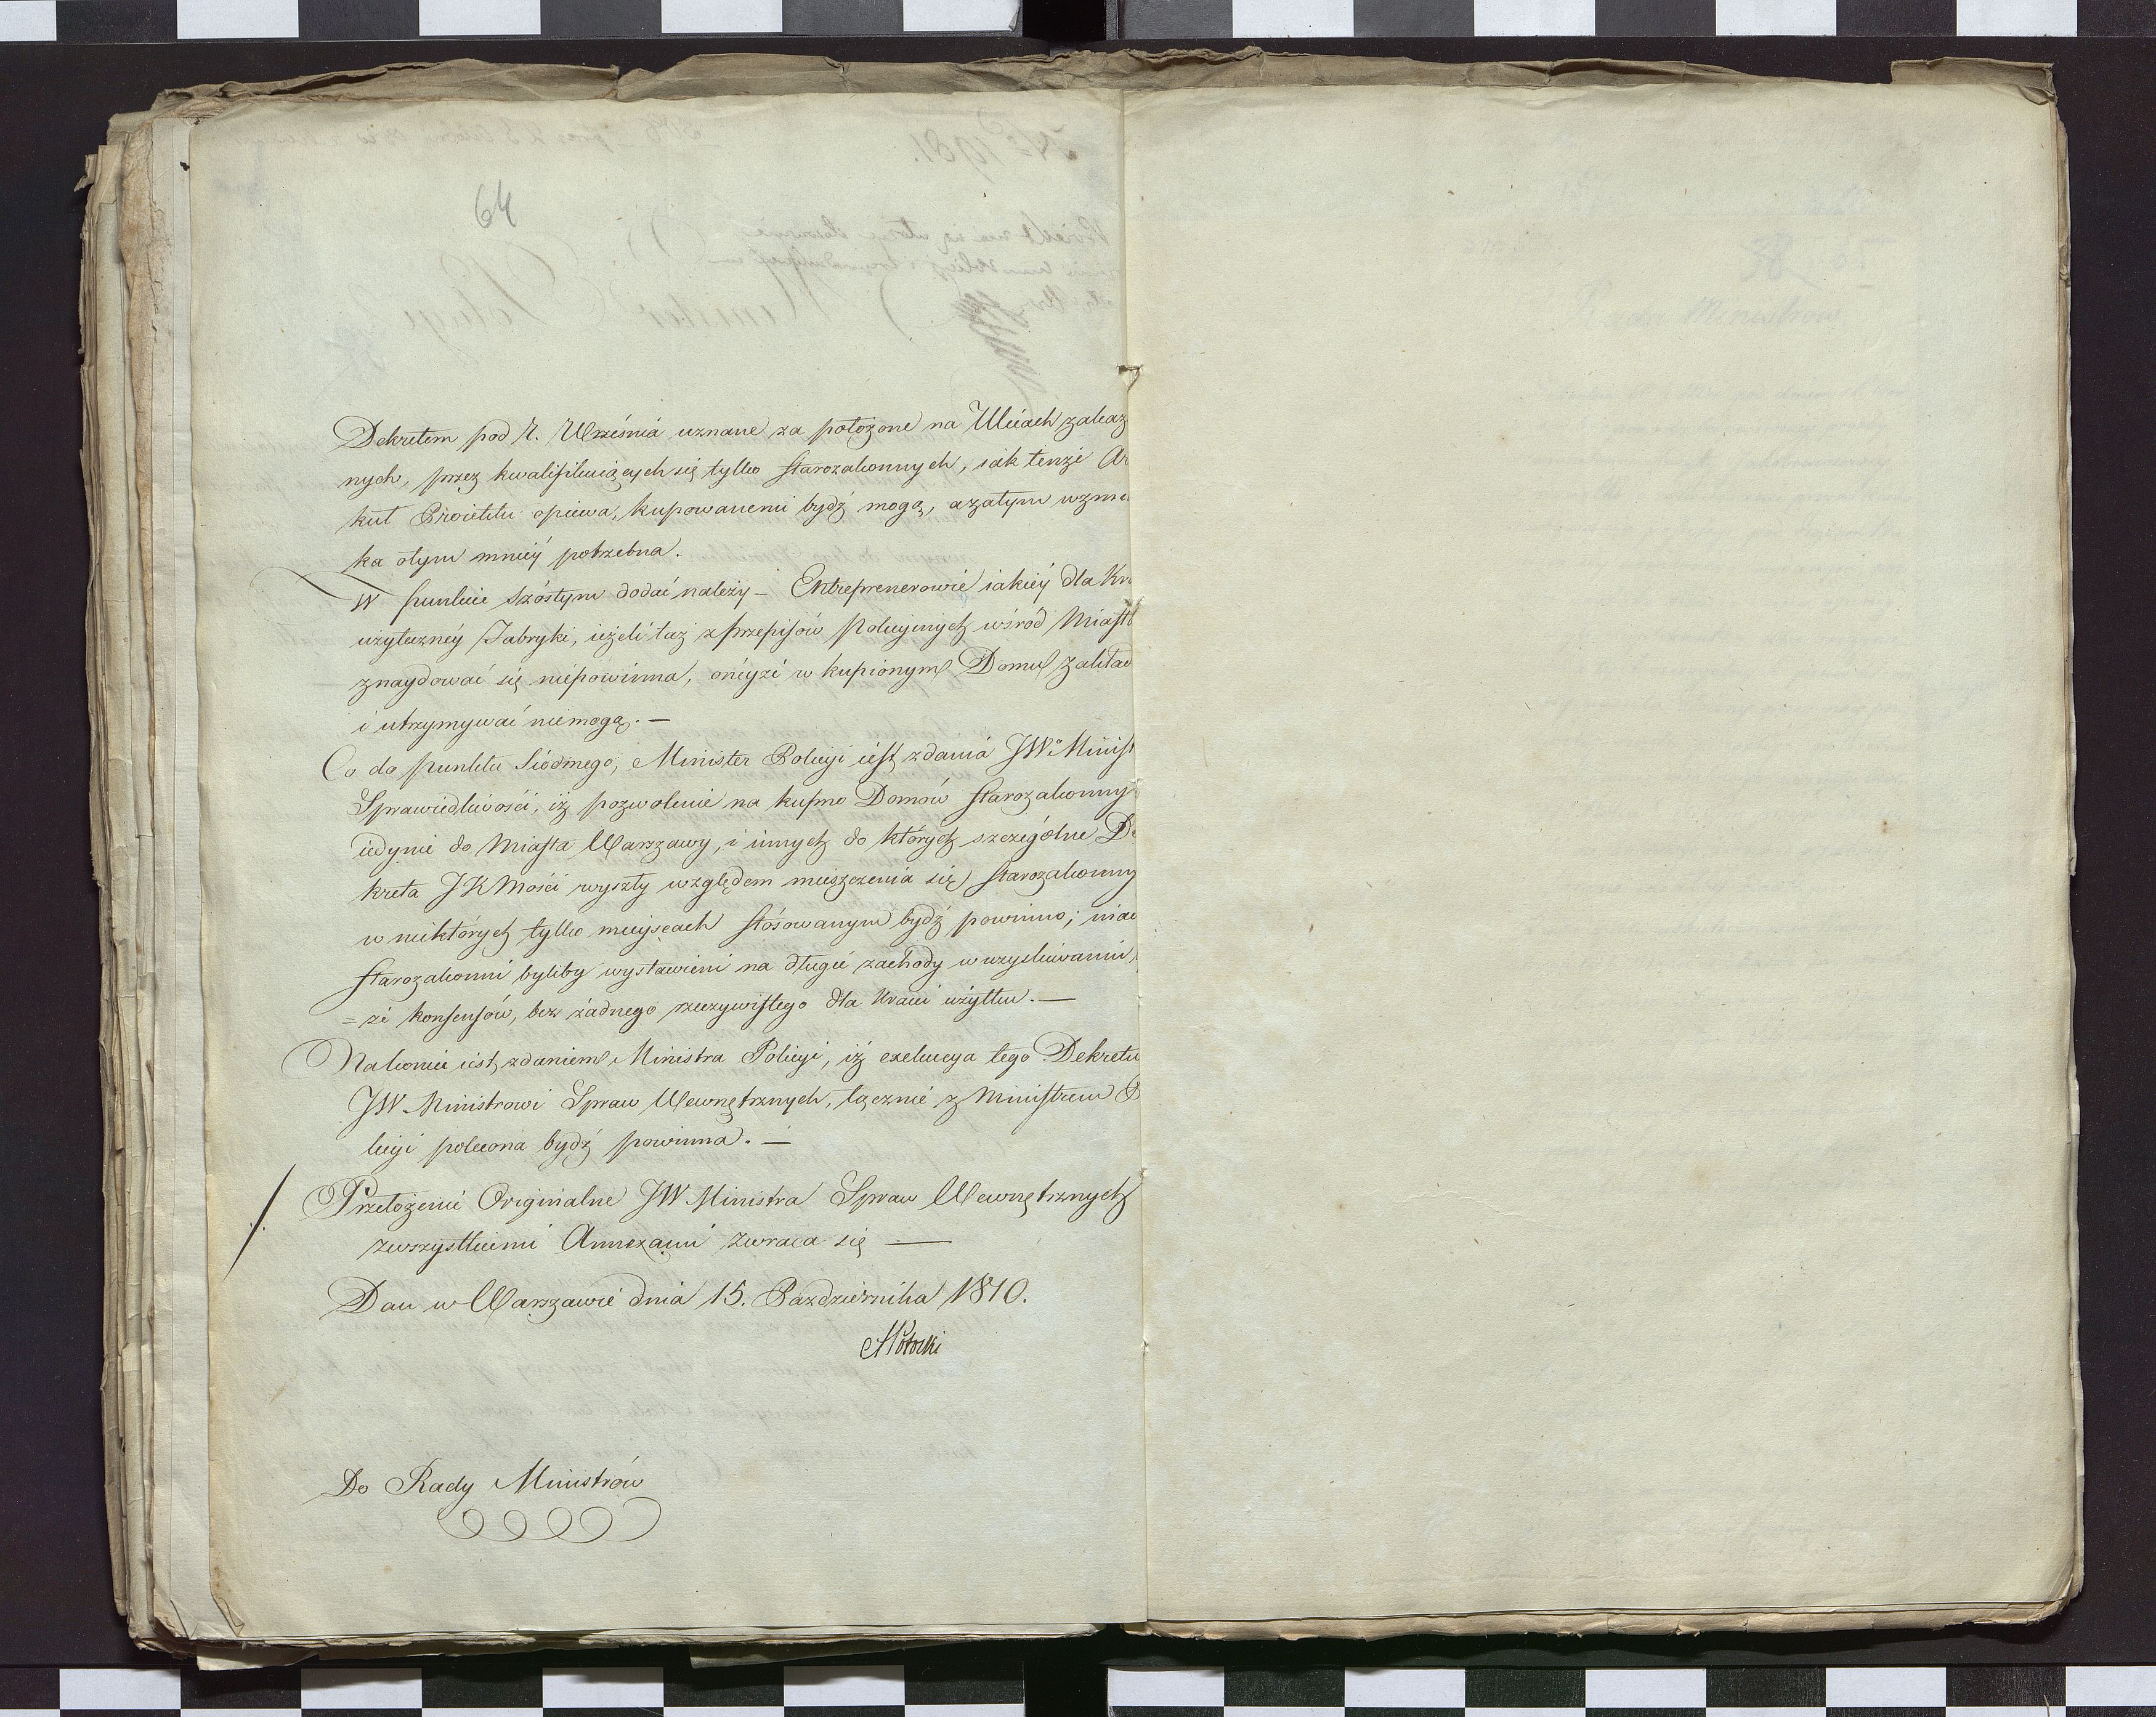 64
Dekretem pod 7. Września uznane za położone na Ulicach zakaz
nych, przez kwalifikuiących się tylko starozakonnych, iak tenże Ar
kuł Proiektu opiewa, kupowanemi bydź mogą, azatym wzmi
ka otym mniéy potrzebna.
W punkcie szóstym dodać należy – Entreprenerowie iakiéy dla Kra
użyteczney Fabryki, ieżeli taż z przepisów Policyinych wśród Miasta
znaydować się niepowinna, onéyże w kupionym Domu zakład
i utrzymywać niemogą. —
Co do punktu Siódmego, Minister Policyi iest zdania JWo Minist
Sprawiedliwości, iż pozwolenie na kupno Domów starozakonny
iedynie do Miasta Warszawy, i innych do których szczególne De
kreta JKMości wyszły względem mieszczenia się starozakonny
w niektórych tylko mieyscach stósowanym bydź powinno; inac
starozakonni byliby wystawieni na długie zachody w uzyskiwaniu
= że konsensów, bez żadnego rzeczywistego dla Kraiu użytku. —
Nakoniec iest zdaniem Ministra Policyi, iż exekucya tego Dekretu
JW Ministrowi Spraw Wewnętrznych, łącznie z Ministrem P
licyi polecona bydź powinna. —
Przełożenie Originalne JW Ministra Spraw Wewnętrznych
zwszystkiemi Annexami zwraca się —
Dan w Warszawie dnia 15. Października 1810.
APotocki
Do Rady Ministrów